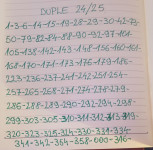 DUPLE 24/25
1-3-6-14-15-19-28-29-30-42-73-
50-79-82-84-88-90-92-97-101-
105-138-142-143-148-156-160-161-
168-170-171-173-176-179-186-
223-236-237-240-242-251-254-
257-265-268-271-274-278-279-
286-288-289-290-292-294-298-
299-303-305-310-311-312-313-319-
320-323-325-324-330-331-334-
341-342-364-358-000-316-